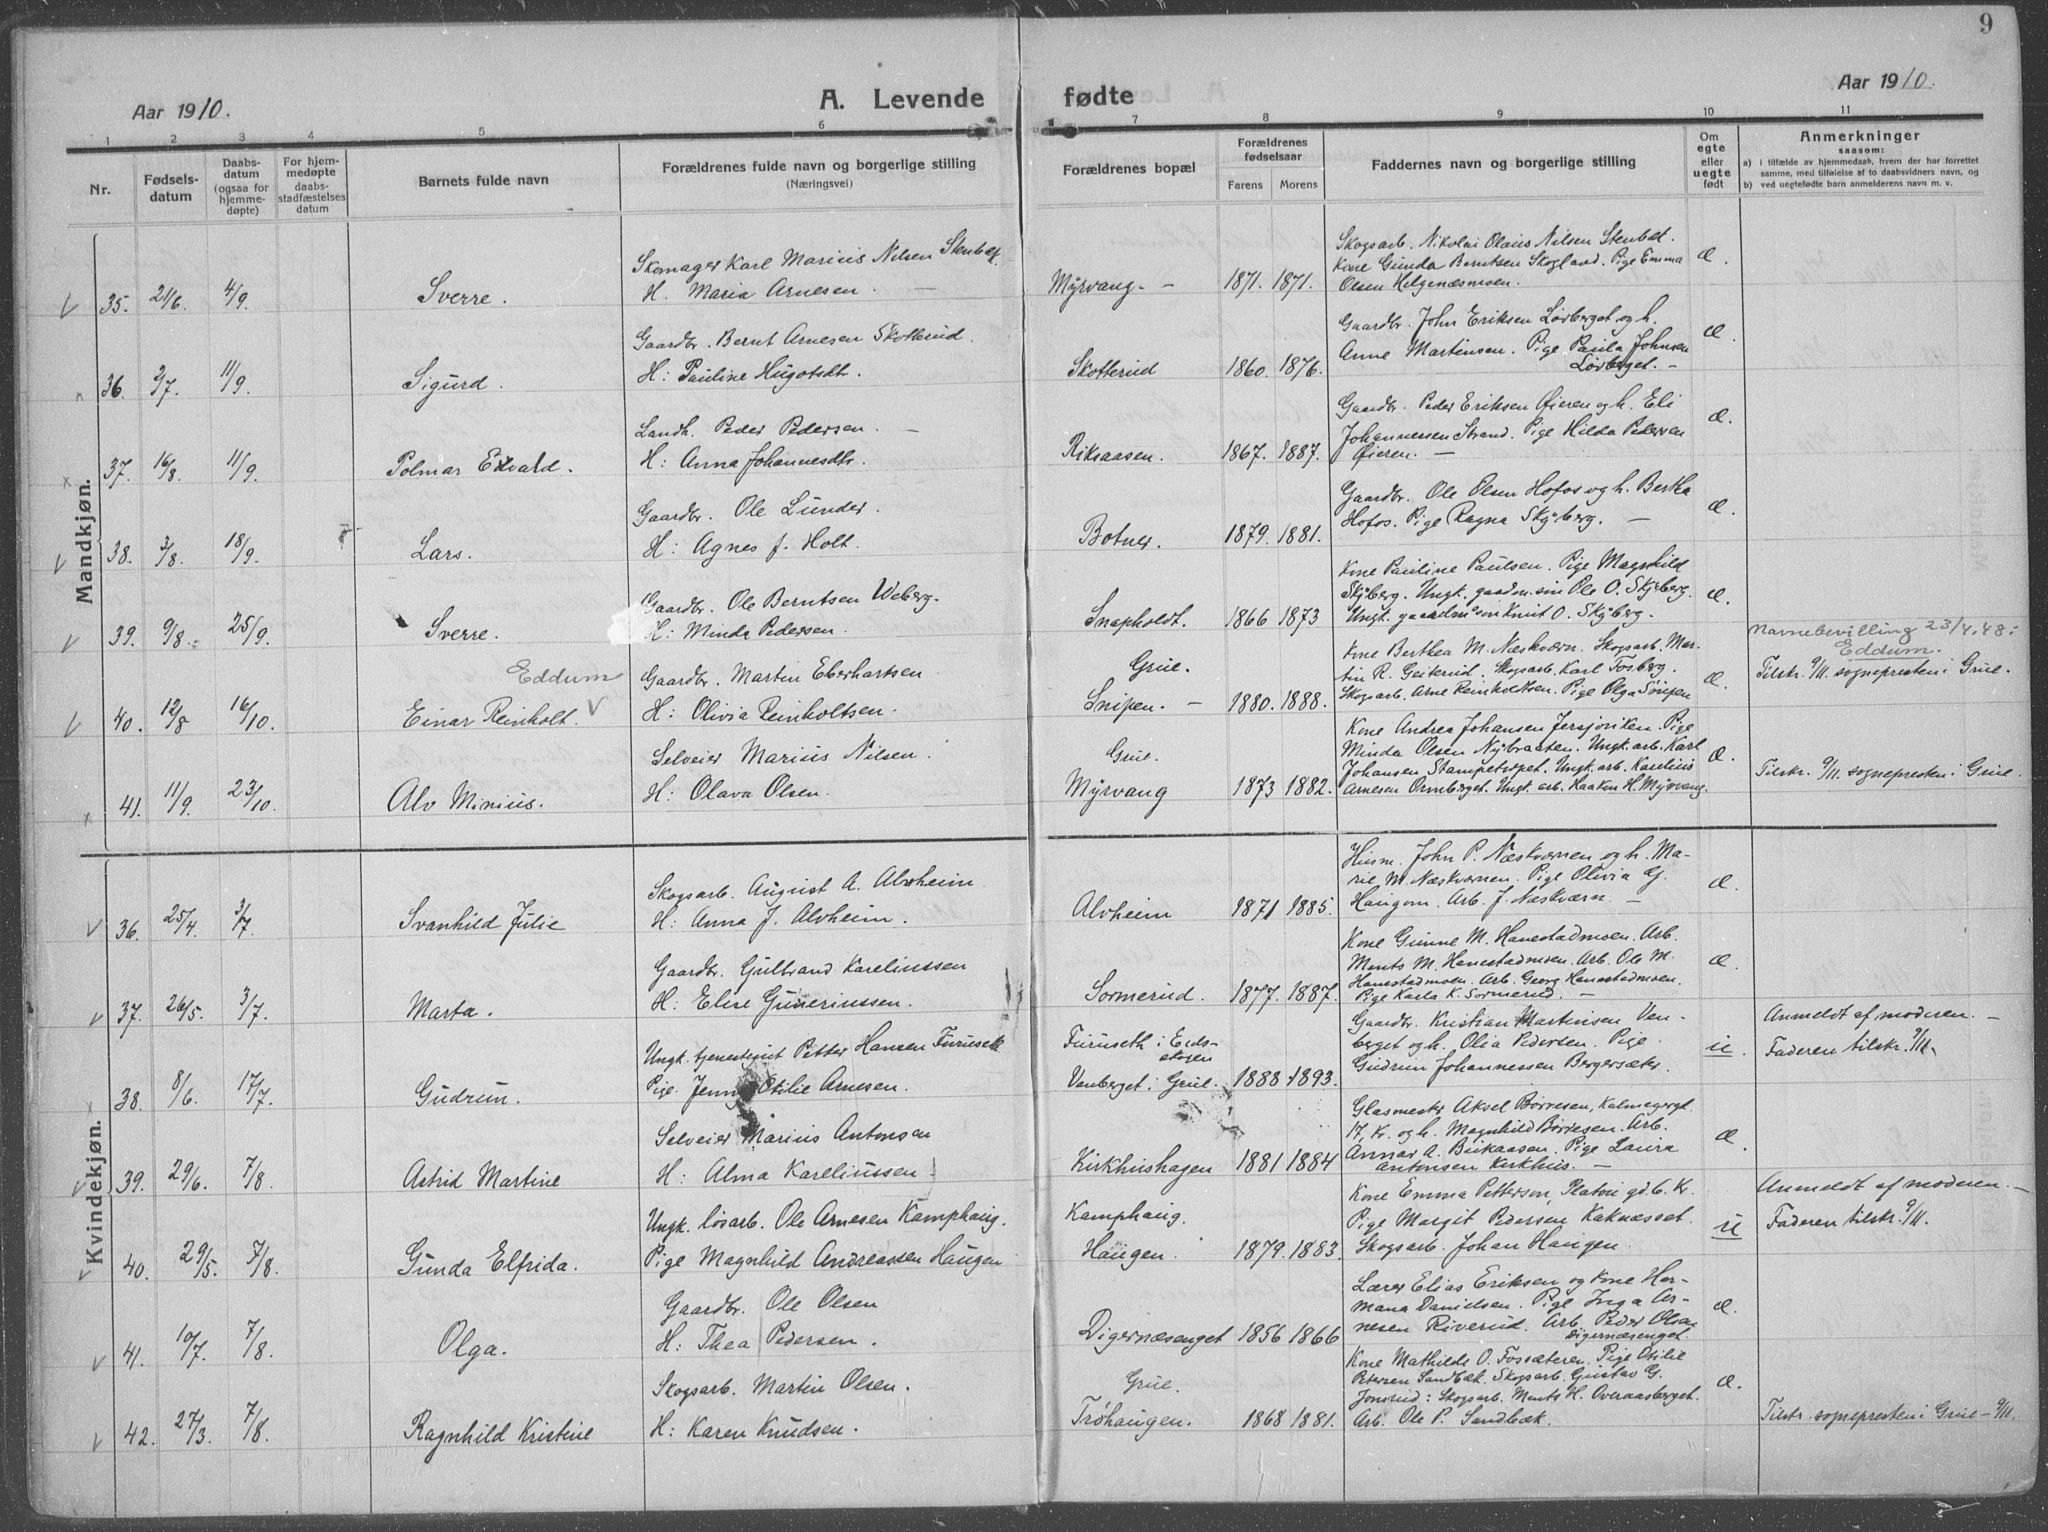 9
Aar 1910.
A. Levende fødte
Aar 1910.
1 2 3 4 5 6 7 8 9 10 11
Nr.
Fødselsdatum
Daabsdatum (ogsaa for hjemmedøpte)
For hjemmedøpte daabsstadfæstelses datum
Barnets fulde navn
Forældrenes fulde navn og borgerlige stilling (Næringsvei)
Forældrenes bopæl
Forældrenes fødselsaar
Farens Morens
Faddernes navn og borgerlige stilling
Om egte eller uegte født
Anmerkninger
saasom:
a) i tilfælde av hjemmedaab, hvem der har forrettet samme, med tilføielse af to daabsvidners navn, og
b) ved uegtefødte barn anmelderens navn m. v.
Mandkjøn.
35. 21/6 4/9. Sverre.
Skomager Karl Marius Nilsen Stenbæk.
H. Maria Arnesen.
Myrvang. 1871. 1871.
Skogsarb. Nikolai Olaus Nilsen Stenbæk.
Kone Gunda Berntsen Skogland. Pige Emma
Olsen Helgenæsmoen.
Æ.
36. 2/7. 11/9. Sigurd.
Gaardbr. Bernt Arnesen Skotterud.
H: Pauline Hugotsdtr.
Skotterud 1860. 1876.
Gaardbr. John Eriksen Lövberget og h.
Anne Martinsen. Pige Paula Johnsen
Lövberget.
Æ.
37. 16/8. 11/9. Polmar Edvard.
Landh. Peder Pedersen.
H: Anna Johannesdtr.
Riksaasen. 1867. 1887.
Gaardbr. Peder Eriksen Øieren og h. Eli
Johannessen Strand. Pige Hilda Pedersen
Øieren.
Æ.
38. 3/8. 18/9. Lars.
Gaardbr. Ole Lunder.
H: Agnes J. Holt.
Botner. 1879. 1881.
Gaardbr. Ole Olsen Hofos og h. Bertha
Hofos. Pige Ragna Skyberg.
Æ.
39. 9/8. 25/9. Sverre.
Gaardbr. Ole Berntsen Weberg.
H: Minda Pedersen.
Snapholdt. 1866 1873
Kone Pauline Paulsen. Pige Magnhild
Skyberg. Ungk. gaardm. søn Ole O. Skyberg.
Ungk. gaardm. søn Knut O. Skyberg.
Æ.
40. 12/8 16/10. Einar Reinholt.
Eddum
Gaardbr. Martin Eberhartsen
H: Olivia Reinholtsen.
Grue.
Snipen. 1880. 1888.
Kone Berthea M. Næskværn. Skogsarb. Martin
R. Geiterud. Skogsarb. Karl Fosberg.
Skogsarb. Arne Reinholtsen. Pige Olga Snipen
Æ.
Navnebevilling 23/4.48:
Eddum.
Tilstr. 9/11. sognepresten i Grue.
41. 11/9. 23/10. Alv Minius.
Selveier Marius Nilsen.
H: Olava Olsen.
Grue.
Myrvang 1873 1882.
Kone Andrea Johansen Jersjoviken. Pige
Minda Olsen Nybraaten. Ungk. arb. Karl
Johansen Stampetorpet. Ungk. arb. Karelius
Arnesen Ormberget. Ungk. arb. Haakon H. Myrvang.
Æ.
Tilstr. 9/11. sognepresten i Grue.
Kvindekjøn.
36. 25/4. 3/7. Svanhild Julie
Skogsarb. August A. Alvheim
H: Anna J. Alvheim.
Alvheim 1871 1885.
Husm. John P. Næskværnen og h. Marie
M. Næskværnen. Pige Olivia G.
Haugom. Arb. J. Næskværn.
Æ.
37. 26/5. 3/7. Marta.
Gaardbr. Gulbrand Kareliussen
H: Elise Guneriussen.
Sormerud. 1877. 1887.
Kone Gunne M. Hanestadmoen. Arb.
Mants M. Hanestadmoen. Arb. Ole M.
Hanestadmoen. Arb. Georg Hanestadmoen.
Pige Karla K. Sormerud.
Æ.
38. 8/6. 17/7. Gudrun.
Ungk. tjenestegut Petter Hansen Furuseth
Pige. Jenny Otilie Arnesen.
Furuseth i Eidsskogen
Venberget i Grue. 1888 1893.
Gaardbr. Kristian Martinsen Venberget
og h. Olia Pedersen. Pige
Gudrun Johannessen Bergersæter.
u.
Anmeldt af moderen.
Faderen tilstr. 9/11.
39. 29/6. 7/8. Astrid Martine
Selveier Marius Antonsen
H: Alma Kareliussen
Kirkhushagen 1881 1884
Glasmester Aksel Børresen, Kalmegergt.
17, Kr. og h. Magnhild Børresen. Arb.
Annar A. Bukaasen. Pige Laura
Antonsen Kirkhus.
Æ.
40. 29/5. 7/8. Gunda Elfrida.
Ungk. løsarb. Ole Arnesen Kamphaug.
Pige Magnhild Andreassen Haugen
Kamphaug.
Haugen. 1879. 1883.
Kone Emma Petterson, Platou gd. 6. Kr.
Pige Margit Pedersen Kaknæsset.
Skogsarb. Johan Haugen.
u
Anmeldt af moderen.
Faderen tilstr. 9/11.
41. 10/7. 7/8. Olga.
Gaardbr. Ole Olsen
H: Thea Pedersen.
Digernæsenget 1856 1866
Lærer Elias Eriksen og Kone Hermana
Danielsen. Pige Inga Arnesen
Riverud. Arb. Peder Olsen
Digernæsenget.
Æ.
42. 27/3. 7/8. Ragnhild Kristine
Skogsarb. Martin Olsen.
H: Karen Knudsen.
Grue.
Trohaugen. 1868 1881.
Kone Mathilde O. Fossæteren. Pige Otilie
Petersen Sandbæk. Skogsarb. Gustav G.
Jonsrud: Skogsarb. Mants H. Overaasberget.
Arb. Ole P. Sandbæk.
Æ.
Tilstr. sognepresten i Grue 9/11.